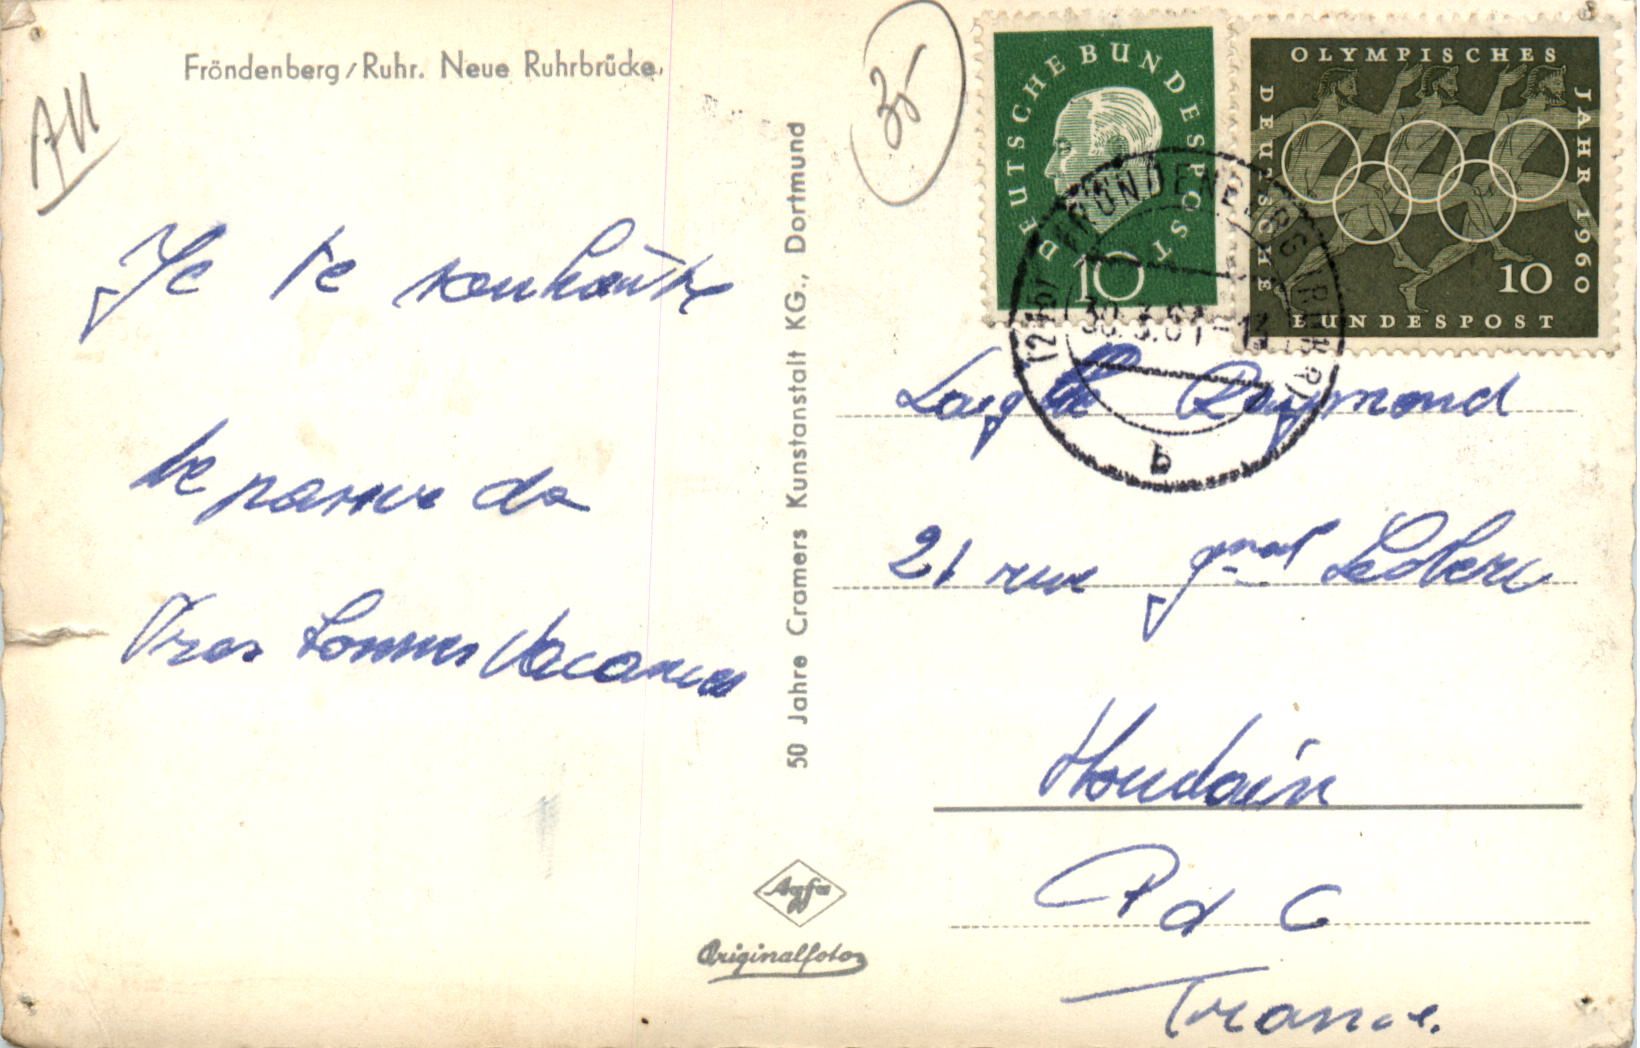 Fröndenberg/Ruhr. Neue Ruhrbrücke.
Je te souhaite
de passer de
Tres bonnes Vacances
50 Jahre Cramers Kunstanstalt KG., Dortmund
Agfa
Originalfoto
35-
DEUTSCHE BUNDESPOST
10
OLYMPISCHES JAHR 1960
DEUTSCHE BUNDESPOST
10
FRÖNDENBERG (RUHR)
30.3.61
b
Raymond
21 rue gnal Leclerc
Houdain
P d C
France.